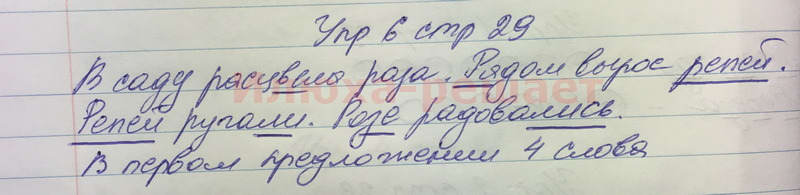 Упр 6 стр 29
В саду расцвела роза. Рядом вырос репей.
илюха-решает
Репей ругали. Розе радовались.
В первом предложении 4 слова